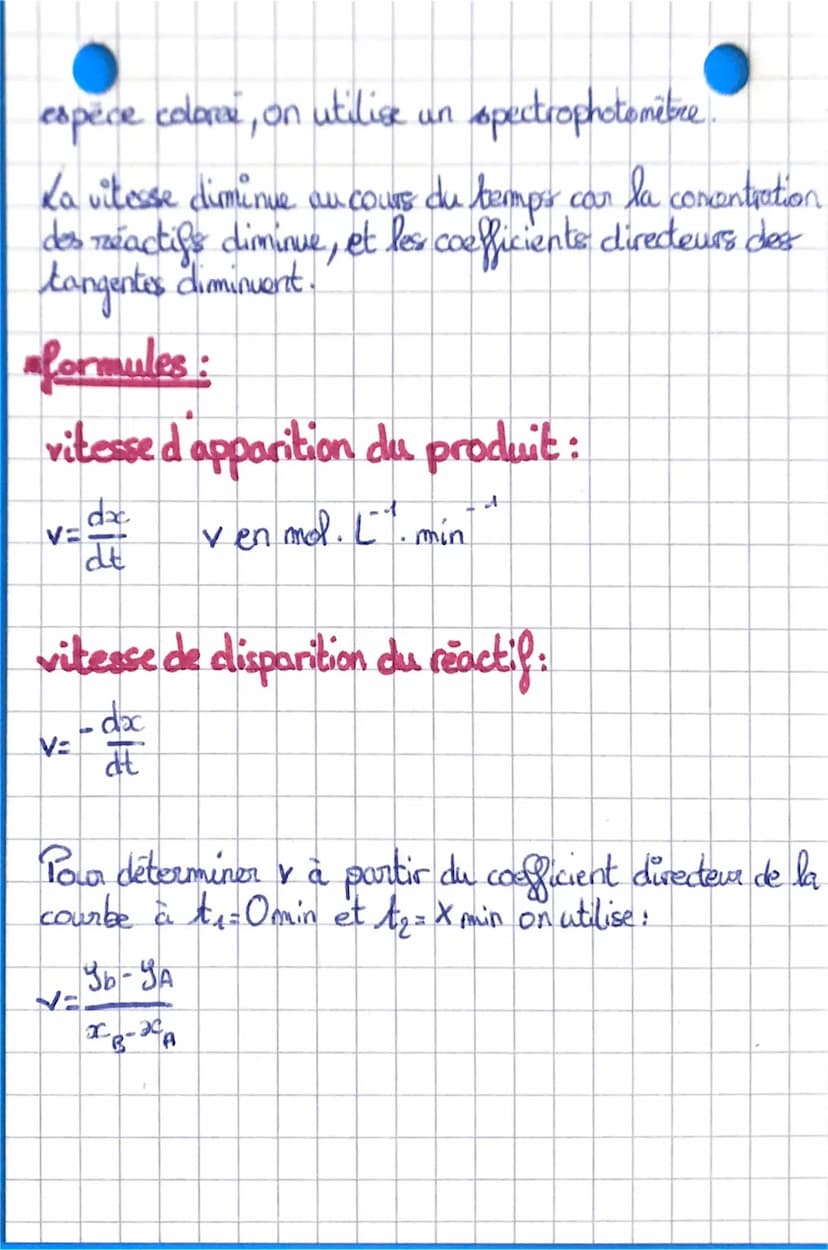 espèce coloreé, on utilise un spectrophotomètre.
La vitesse diminue au cours du temps car la concentration
des réactifs diminue, et les coefficients directeurs des
tangentes diminuent.
formules :
vitesse d'apparition du produit :
v = dx/dt v en mol. L⁻¹. min⁻¹
vitesse de disparition du réactif :
v = - dx/dt
Pour déterminer v à partir du coefficient directeur de la
courbe à t₁ = 0 min et t₂ = X min on utilise :
v = (yb - yA)/(xB - xA)